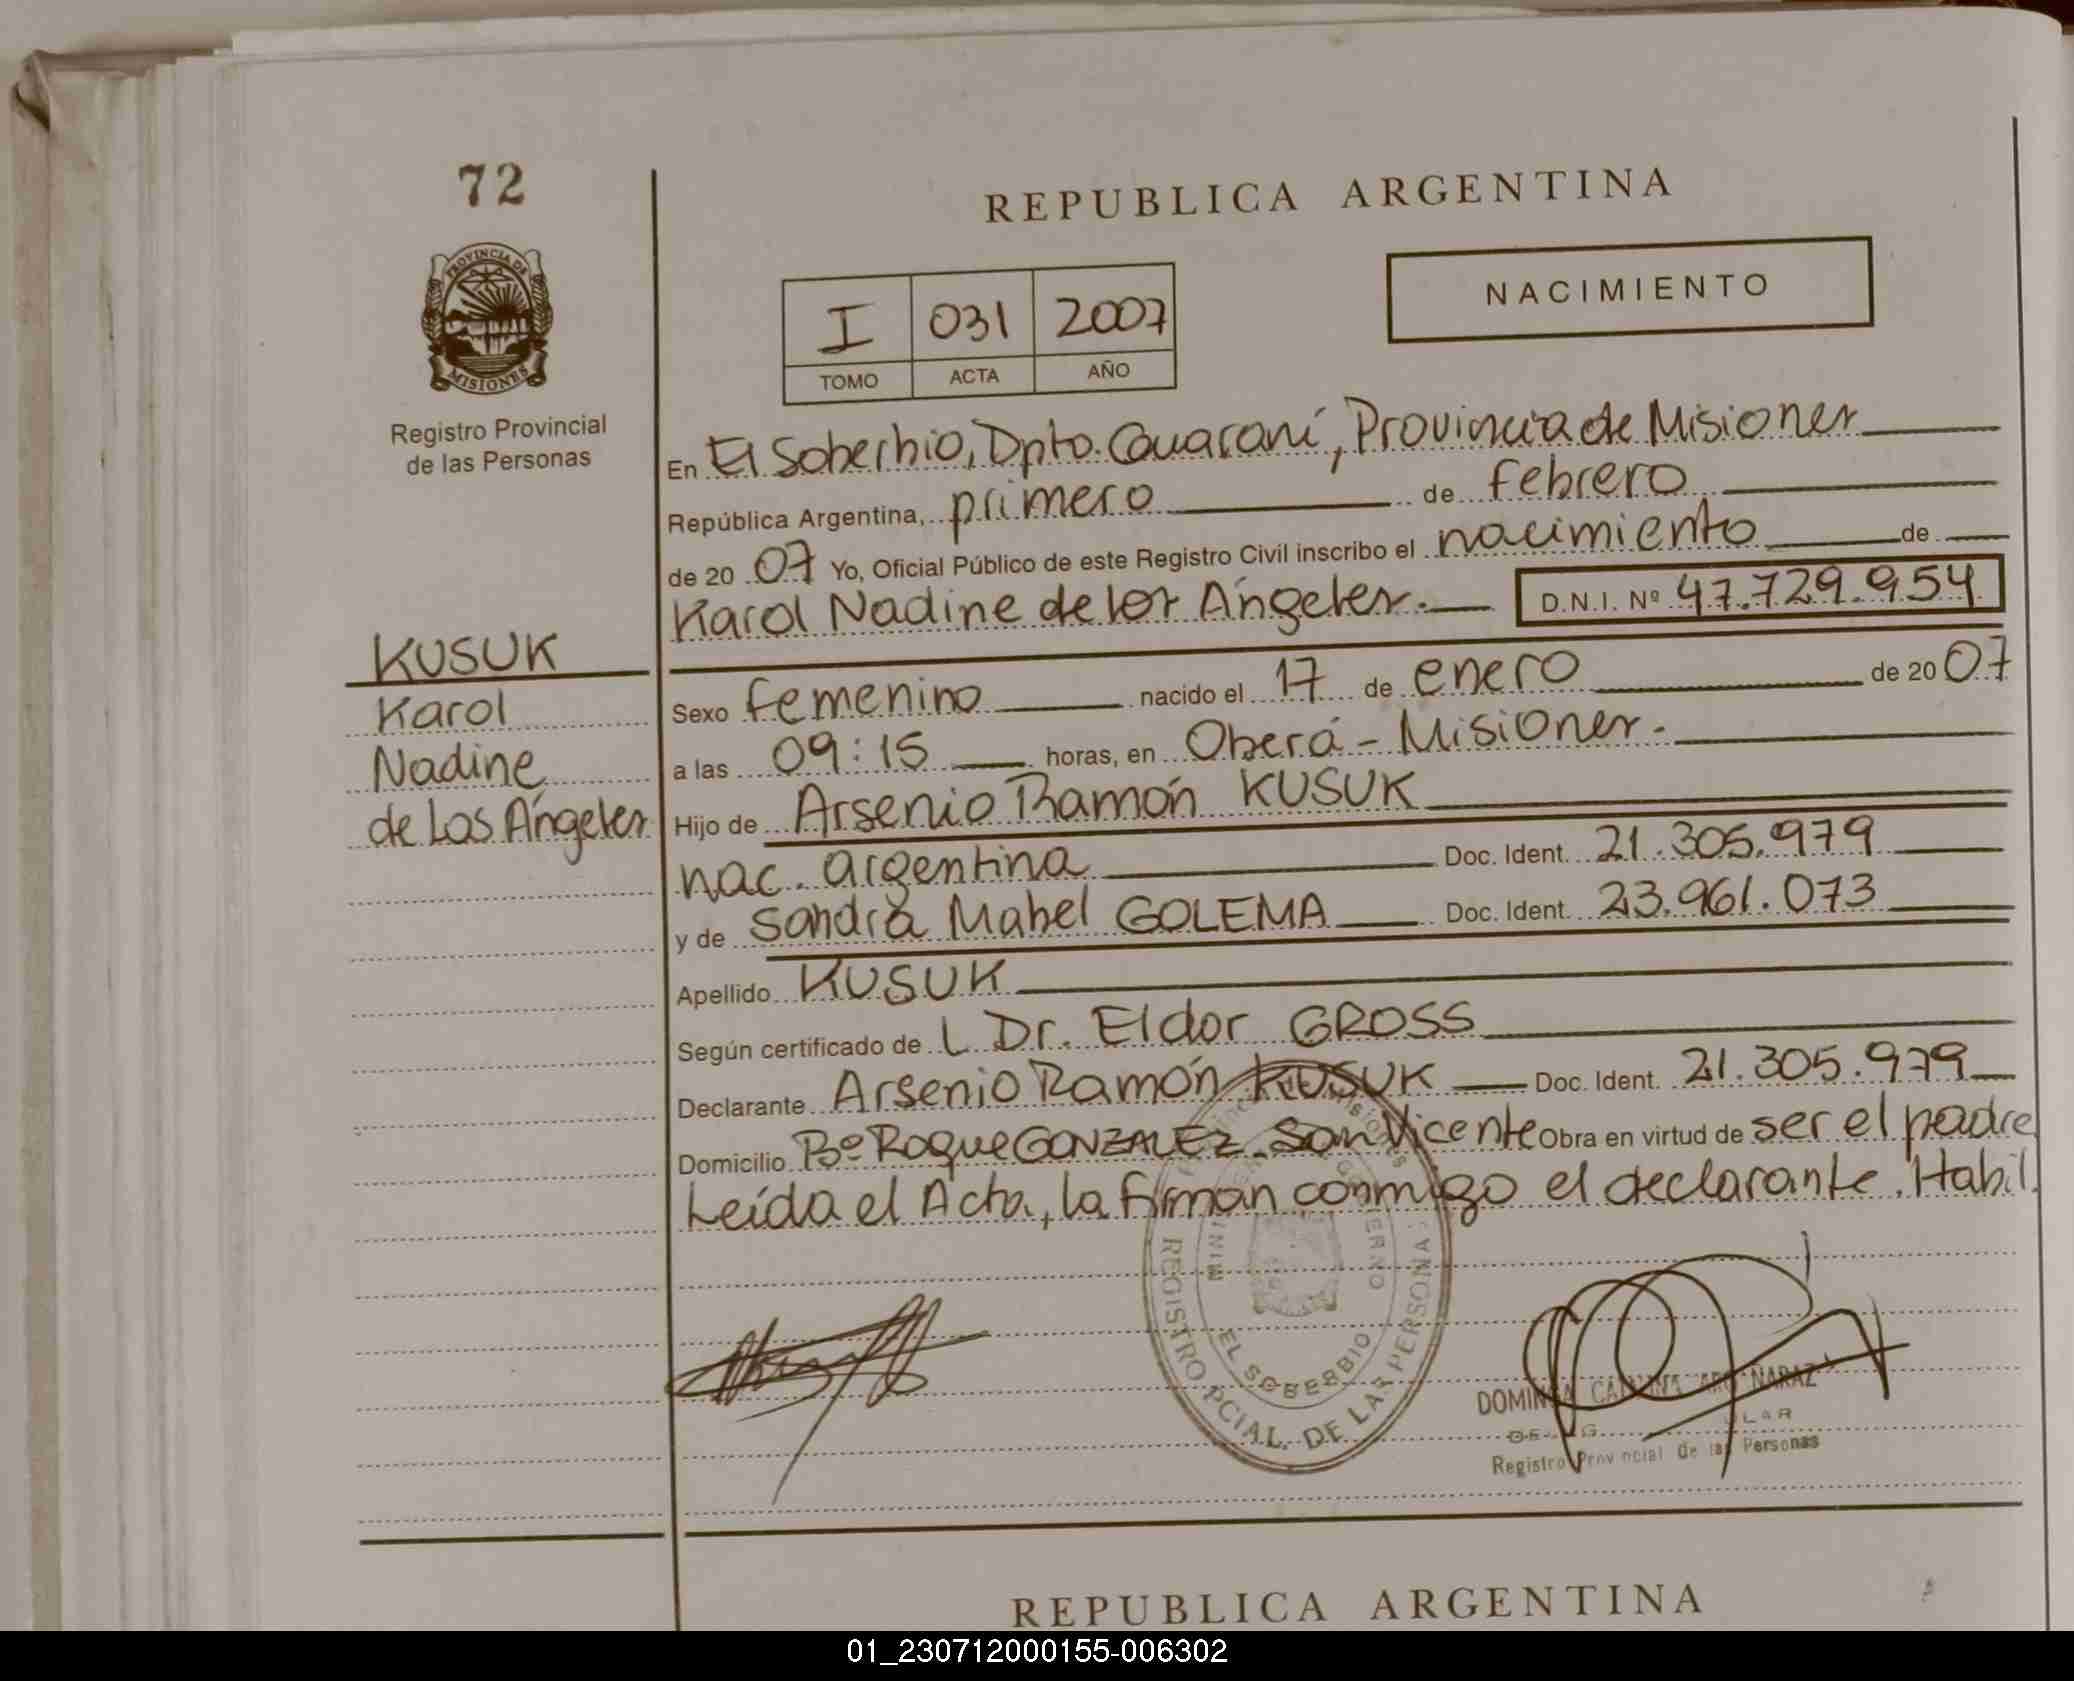 72
PROVINCIA DE
MISIONES
Registro Provincial
de las Personas
REPUBLICA ARGENTINA
NACIMIENTO
I 031 2007
TOMO ACTA AÑO
KUSUK
Karol
Nadine
de Los Ángeles
En El Soberbio, Dpto. Guaraní, Provincia de Misiones
República Argentina, primero de febrero
de 20 07 Yo, Oficial Público de este Registro Civil inscribo el nacimiento de
Karol Nadine de los Ángeles. D.N.I. Nº 47.729.954
Sexo femenino nacido el 17 de enero de 20 07
a las 09:15 horas, en Oberá - Misiones.
Hijo de Arsenio Ramón KUSUK
nac. argentina Doc. Ident. 21.305.979
y de Sandra Mabel GOLEMA Doc. Ident. 23.961.073
Apellido KUSUK
Según certificado de L Dr. Eldor GROSS
Declarante Arsenio Ramón KUSUK Doc. Ident. 21.305.979
Domicilio Bº Roque GONZALEZ. San Vicente Obra en virtud de ser el padre
Leída el Acta, la firman conmigo el declarante. Habil.
EL SOBERBIO
REGISTRO PCIAL. DE LAS PERSONAS
Registro Provincial De las Personas
REPUBLICA ARGENTINA
01_230712000155-006302